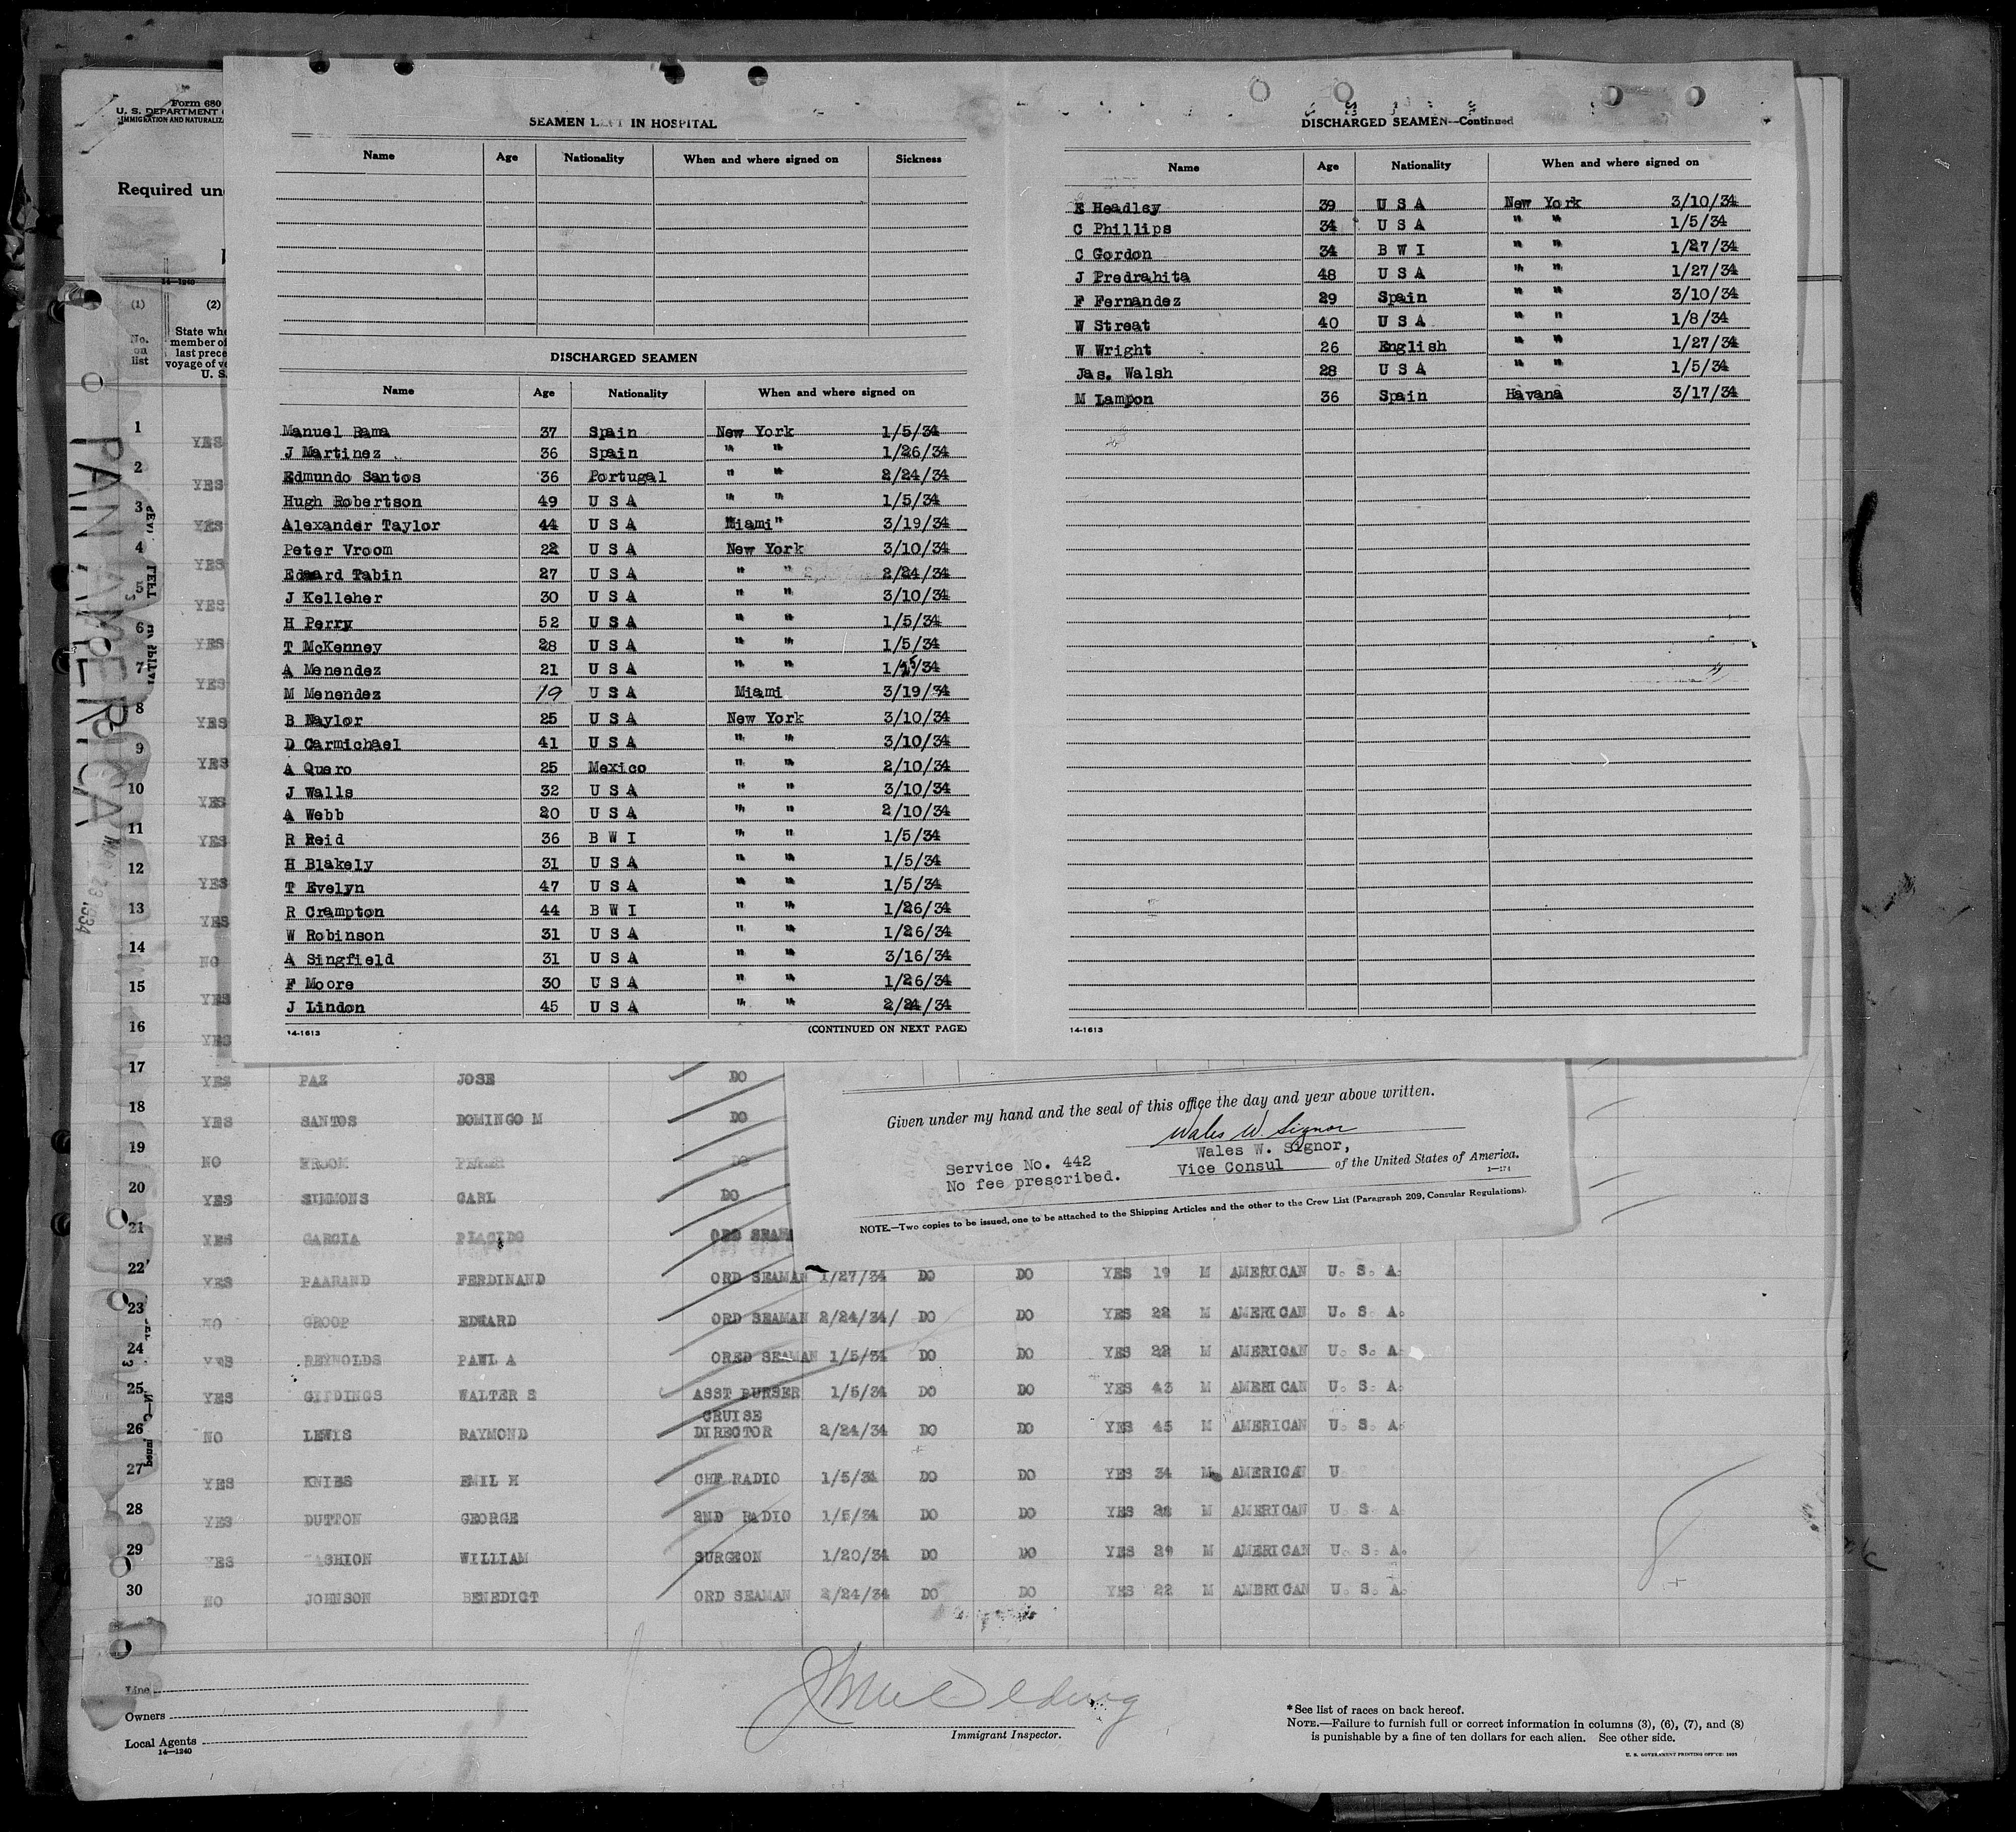 Form 680
U. S. DEPARTMENT
IMMIGRATION AND
Required
14—1240
(1)
(2)
No. on list
State
member of
last
voyage of
U. S.
PAN AMERICA
SEAMEN LEFT IN HOSPITAL
Name Age Nationality When and where signed on Sickness
DISCHARGED SEAMEN
Name Age Nationality When and where signed on
Manuel Rama 37 Spain New York 1/5/34
J Martinez 36 Spain " " 1/26/34
Edmundo Santos 36 Portugal " " 2/24/34
Hugh Robertson 49 U S A " " 1/5/34
Alexander Taylor 44 U S A Miami" 3/19/34
Peter Vroom 22 U S A New York 3/10/34
Edward Tabin 27 U S A " " 2/24/34
J Kelleher 30 U S A " " 3/10/34
H Perry 52 U S A " " 1/5/34
T McKenney 28 U S A " " 1/5/34
A Menendez 21 U S A " "
M Menendez 19 U S A Miami 3/19/34
B Naylor 25 U S A New York 3/10/34
D Carmichael 41 U S A " " 3/10/34
A Quero 25 Mexico " " 2/10/34
J Walls 32 U S A " " 3/10/34
A Webb 20 U S A " " 2/10/34
R Reid 36 B W I " " 1/5/34
H Blakely 31 U S A " " 1/5/34
T Evelyn 47 U S A " " 1/5/34
R Crampton 44 B W I " " 1/26/34
W Robinson 31 U S A " " 1/26/34
A Singfield 31 U S A " " 3/16/34
F Moore 30 U S A " " 1/26/34
J Lindon 45 U S A " " 2/24/34
14-1613 (CONTINUED ON NEXT PAGE)
DISCHARGED SEAMEN—Continued
Name Age Nationality When and where signed on
E Headley 39 U S A New York 3/10/34
C Phillips 34 U S A " " 1/5/34
C Gordon 34 B W I " " 1/27/34
J Predrahita 48 U S A " " 1/27/34
F Fernandez 29 Spain " " 3/10/34
W Streat 40 U S A " " 1/8/34
W Wright 26 English " " 1/27/34
Jas. Walsh 28 U S A " " 1/5/34
M Lampon 36 Spain Havana 3/17/34
14-1613
1 YES
2 YES
3 YES
4 YES
5 YES
6 YES
7 YES
8 YES
9 YES
10 YES
11 YES
12 YES
13 YES
14 NO
15 YES
16 YES
17 YES PAZ JOSE DO
18 YES SANTOS DOMINGO M DO
19 NO VROOM PETER DO
20 YES SIMMONS CARL DO
21 YES GARCIA PLACIDO ORD SEAM
22 YES PAARAND FERDINAND ORD SEAMAN 1/27/34 DO DO YES 19 M AMERICAN U. S. A.
23 NO GROOP EDWARD ORD SEAMAN 2/24/34/ DO DO YES 22 M AMERICAN U. S. A.
24 YES REYNOLDS PAUL A ORED SEAMAN 1/5/34 DO DO YES 22 M AMERICAN U. S. A.
25 YES GIDDINGS WALTER S ASST PURSER 1/5/34 DO DO YES 43 M AMERICAN U. S. A.
26 NO LEWIS RAYMOND CRUISE DIRECTOR 2/24/34 DO DO YES 45 M AMERICAN U. S. A.
27 YES KNIES EMIL H CHF RADIO 1/5/34 DO DO YES 34 M AMERICAN U
28 YES DUTTON GEORGE 2ND RADIO 1/5/34 DO DO YES 28 M AMERICAN U S A
29 YES WILLIAM SURGEON 1/20/34 DO DO YES 29 M AMERICAN U. S. A.
30 NO JOHNSON BENEDICT ORD SEAMAN 2/24/34 DO DO YES 22 M AMERICAN U. S. A.
Given under my hand and the seal of this office the day and year above written.
Wales W. Signor
Wales W. Signor,
Service No. 442
Vice Consul of the United States of America.
No fee prescribed.
NOTE.—Two copies to be issued, one to be attached to the Shipping Articles and the other to the Crew List (Paragraph 209, Consular Regulations).
Line
Owners
Local Agents
14—1240
Immigrant Inspector.
*See list of races on back hereof.
NOTE.—Failure to furnish full or correct information in columns (3), (6), (7), and (8)
is punishable by a fine of ten dollars for each alien. See other side.
U. S. GOVERNMENT PRINTING OFFICE: